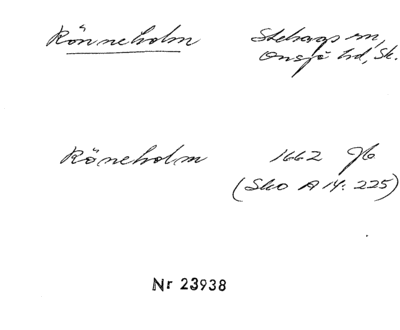 Rönneholm
Stehags sn,
Onsjö hd, Sk.
Röneholm
1662 Jb
(Sko A 14: 225)
Nr 23938